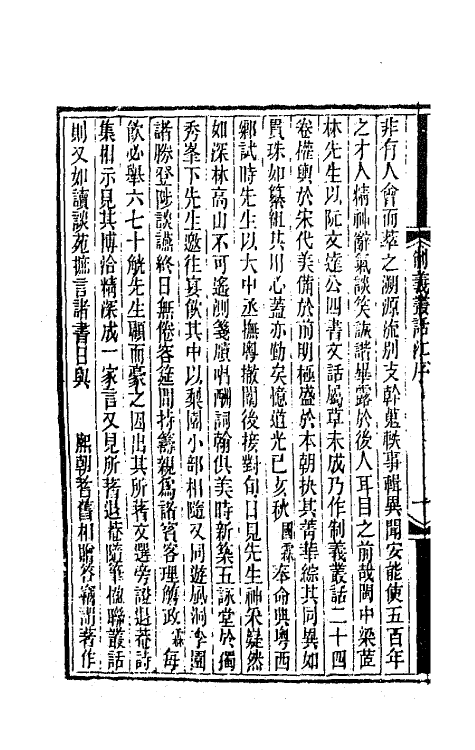 制義叢話江序
一
非有人會而萃之溯源流別支幹蒐軼事輯異聞安能使五百年
之才人精神辭氣談笑詼諧畢露於後人耳目之前哉閩中梁茝
林先生以阮文達公四書文話屬草未成乃作制義叢話二十四
卷權輿於宋代美備於前明極盛於本朝抉其菁華綜其同異如
貫珠如纂組其用心蓋亦勤矣憶道光己亥秋國霖奉命典粵西
鄉試時先生以大中丞撫粵撤闈後接對旬日見先生神采凝然
如深林高山不可遙測箋牘唱酬詞翰俱美時新築五詠堂於獨
秀峯下先生邀往宴飲其中以梨園小部相隨又同遊風洞李園
諸勝登陟談讌終日無倦容筵間持籌親為諸賓客理觴政霖每
飲必舉六七十觥先生顧而豪之因出其所著文選旁證退菴詩
集相示見其博洽精深成一家言又見所著退菴隨筆楹聯叢話
則又如讀談苑摭言諸書日與熙朝耆舊相贈答竊謂著作